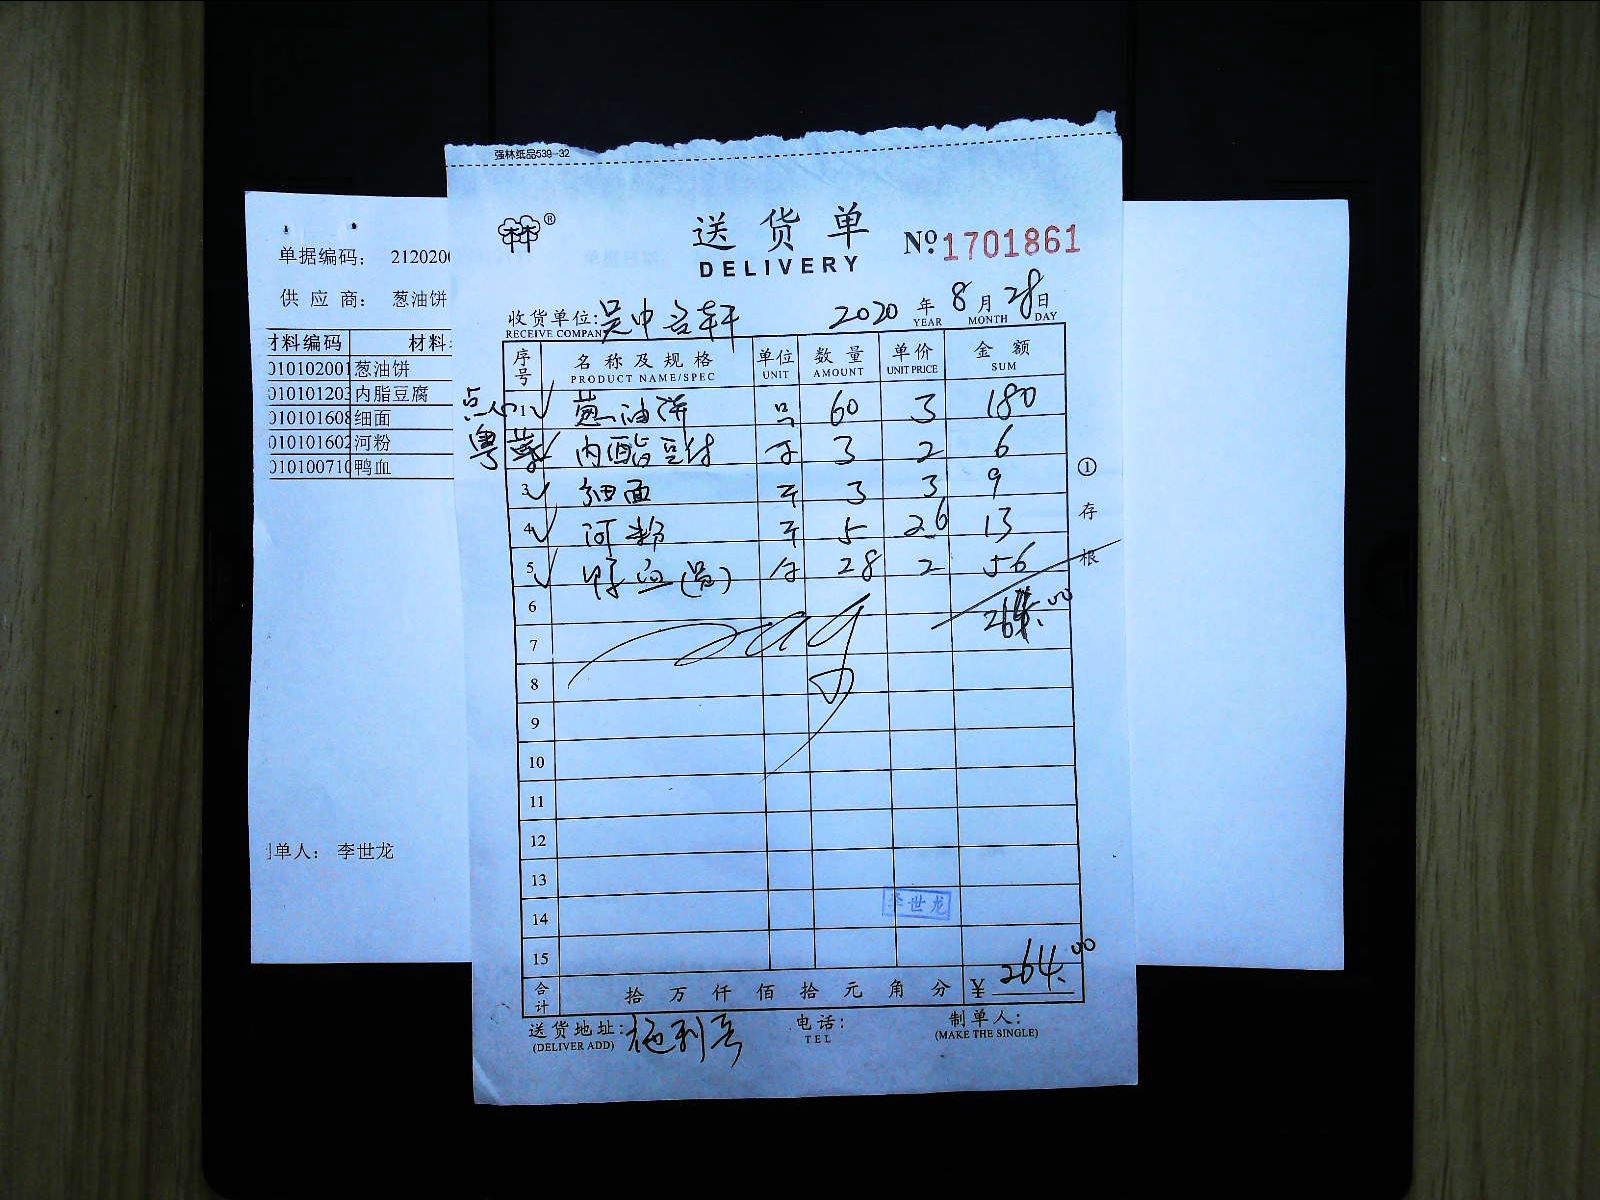 强林纸品539-32
单据编码： 212020
供 应 商： 葱油饼
材料编码 材料
010102001 葱油饼
010101203 内脂豆腐
010101608 细面
010101602 河粉
010100710 鸭血
制单人： 李世龙
送货单
DELIVERY
№ 1701861
收货单位: 吴中名轩 2020 年 8 月 28 日
RECEIVE COMPAN YEAR MONTH DAY
序号 名称及规格 单位 数量 单价 金额
PRODUCT NAME/SPEC UNIT AMOUNT UNIT PRICE SUM
点心
1 葱油饼 只 60 3 180
粤菜
内酯豆付 3 2 6
3 细面 斤 3 3 9
4 河粉 斤 5 2.6 13
5 鸭血 28 2 56
6 264.00
7
8
9
10
11
12
13
14
15
李世龙
合计 拾 万 仟 佰 拾 元 角 分 ¥ 264.00
① 存根
送货地址: 电话: 制单人:
(DELIVER ADD) TEL (MAKE THE SINGLE)